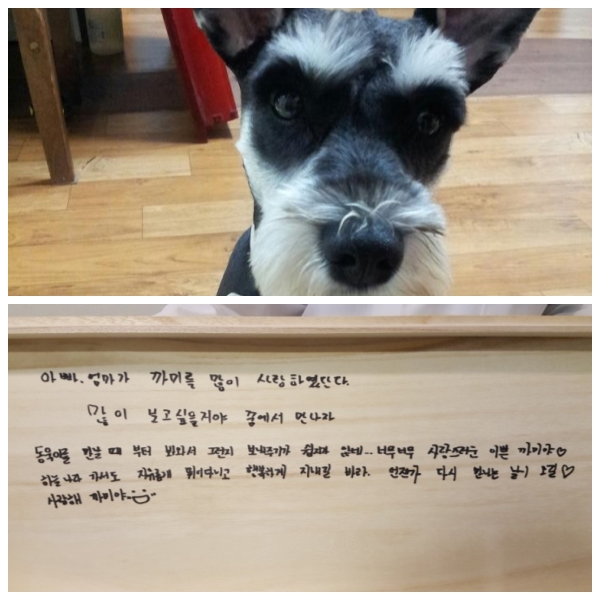 아빠.엄마가 까미를 많이 사랑하였단다.
많이 보고싶을거야 꿈에서 만나자
동욱이를 만날 때 부터 봐와서 그런지 보내주기가 쉽지가 않네... 너무너무 사랑스러운 이쁜 까미야♡
하늘나라 가서도 자유롭게 뛰어다니고 행복하게 지내길 바라. 언젠가 다시 만나는 날이 오길♡
사랑해 까미야~